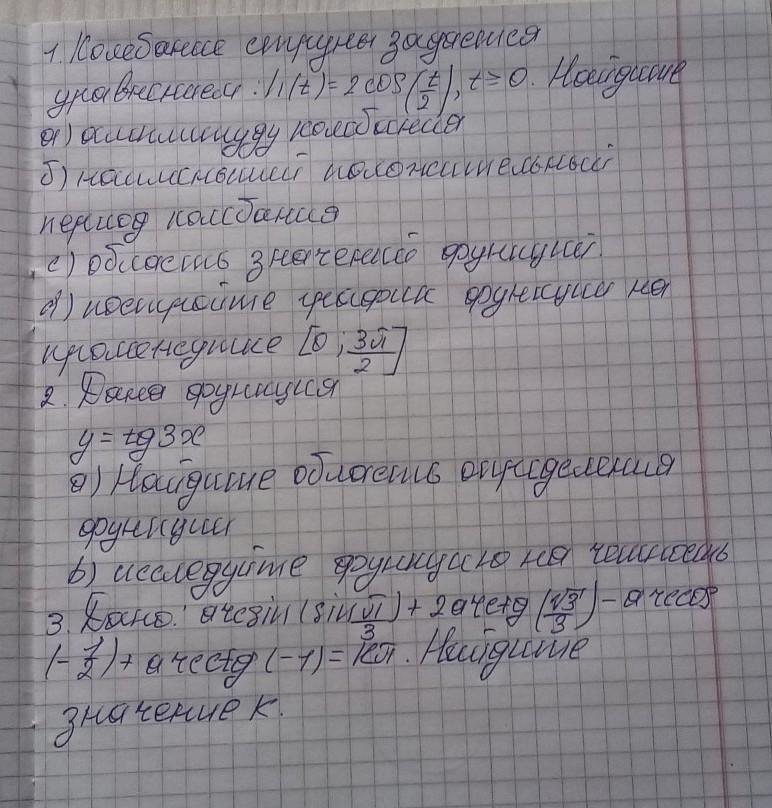 1. Колебание струны задается
уравнением: h(t)=2cos(t/2), t≥0. Найдите
а) амплитуду колебания
б) наименьший положительный
период колебания
с) область значений функций.
d) постройте график функции на
промежутке [0; 3π/2]
2. Дана функция
y = tg3x
а) Найдите область определения
функции
b) исследуйте функцию на четность
3. Дано: arcsin(sin π/3) + 2arctg(√3/3) - arccos
(-1/2) + arcctg(-1) = kπ. Найдите
значение k.